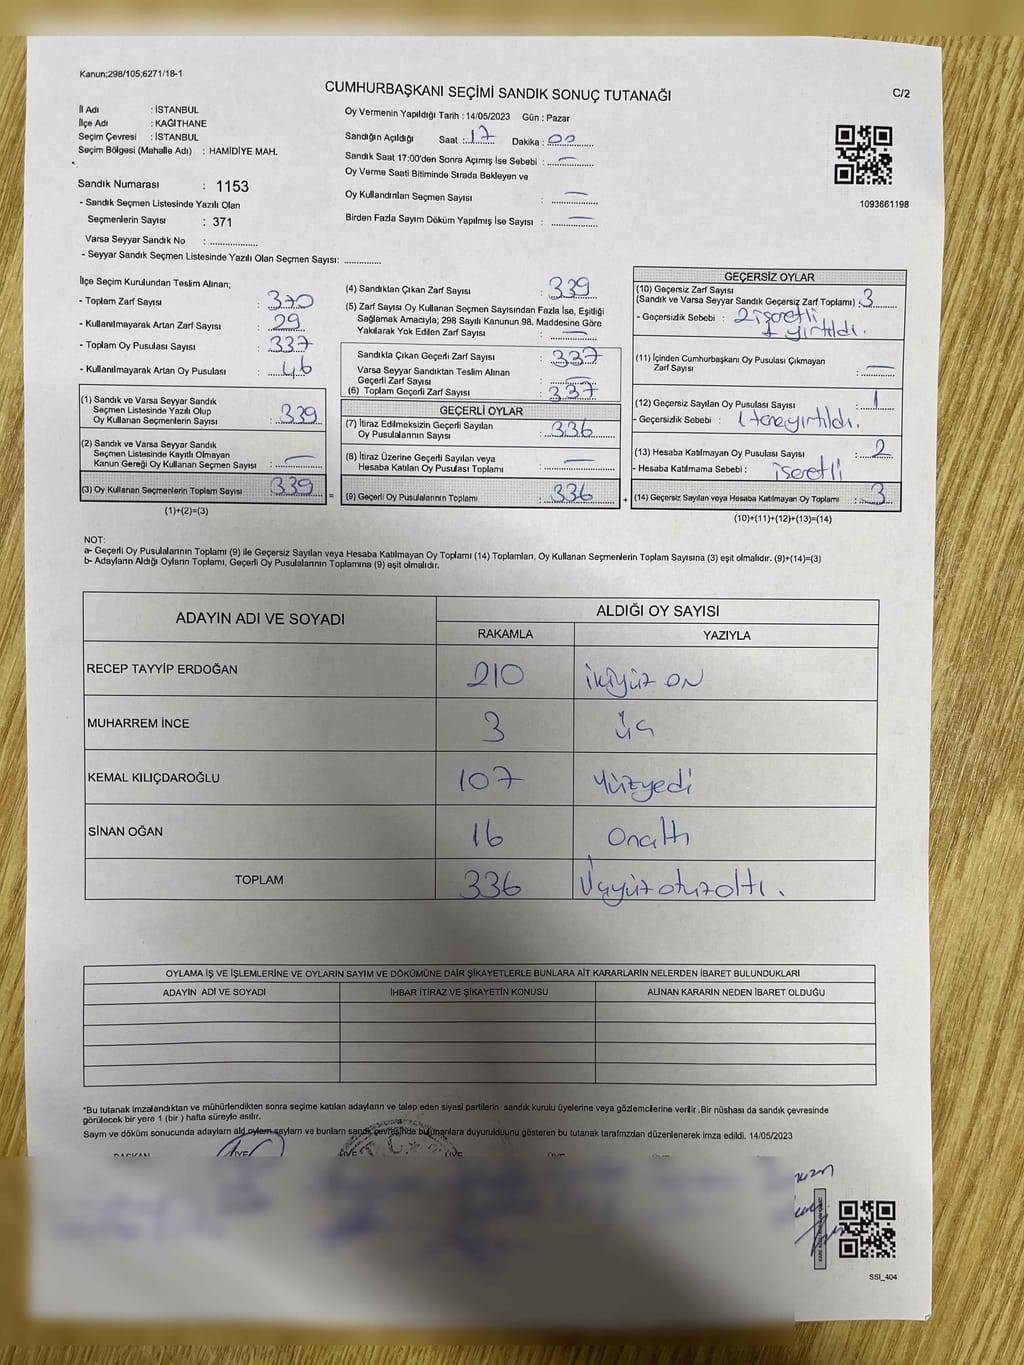 Kanun;298/105;6271/18-1
CUMHURBAŞKANI SEÇİMİ SANDIK SONUÇ TUTANAĞI
C/2
İl Adı : İSTANBUL
İlçe Adı : KAĞITHANE
Seçim Çevresi : İSTANBUL
Seçim Bölgesi (Mahalle Adı) : HAMİDİYE MAH.
Sandık Numarası : 1153
- Sandık Seçmen Listesinde Yazılı Olan
Seçmenlerin Sayısı : 371
Varsa Seyyar Sandık No : ...............
- Seyyar Sandık Seçmen Listesinde Yazılı Olan Seçmen Sayısı: ............
Oy Vermenin Yapıldığı Tarih : 14/05/2023 Gün : Pazar
Sandığın Açıldığı Saat : 17 Dakika : 00
Sandık Saat 17:00'den Sonra Açımış İse Sebebi : —
Oy Verme Saati Bitiminde Sırada Bekleyen ve
Oy Kullandırılan Seçmen Sayısı : —
Birden Fazla Sayım Döküm Yapılmış İse Sayısı : —
1093661198
İlçe Seçim Kurulundan Teslim Alınan;
- Toplam Zarf Sayısı : 370
- Kullanılmayarak Artan Zarf Sayısı : 29
- Toplam Oy Pusulası Sayısı : 337
- Kullanılmayarak Artan Oy Pusulası : 46
(1) Sandık ve Varsa Seyyar Sandık
Seçmen Listesinde Yazılı Olup
Oy Kullanan Seçmenlerin Sayısı : 339
(2) Sandık ve Varsa Seyyar Sandık
Seçmen Listesinde Kayıtlı Olmayan
Kanun Gereği Oy Kullanan Seçmen Sayısı : —
(3) Oy Kullanan Seçmenlerin Toplam Sayısı : 339 =
(1)+(2)=(3)
(4) Sandıktan Çıkan Zarf Sayısı : 339
(5) Zarf Sayısı Oy Kullanan Seçmen Sayısından Fazla İse, Eşitliği
Sağlamak Amacıyla; 298 Sayılı Kanunun 98. Maddesine Göre
Yakılarak Yok Edilen Zarf Sayısı : —
Sandıkta Çıkan Geçerli Zarf Sayısı : 337
Varsa Seyyar Sandıktan Teslim Alınan
Geçerli Zarf Sayısı : —
(6) Toplam Geçerli Zarf Sayısı : 337
GEÇERLİ OYLAR
(7) İtiraz Edilmeksizin Geçerli Sayılan
Oy Pusulalarının Sayısı : 336
(8) İtiraz Üzerine Geçerli Sayılan veya
Hesaba Katılan Oy Pusulası Toplamı : —
(9) Geçerli Oy Pusulalarının Toplamı : 336 +
GEÇERSİZ OYLAR
(10) Geçersiz Zarf Sayısı
(Sandık ve Varsa Seyyar Sandık Geçersiz Zarf Toplamı) : 3
- Geçersizlik Sebebi : 2 işeretli
1 yırtıldı.
(11) İçinden Cumhurbaşkanı Oy Pusulası Çıkmayan
Zarf Sayısı : —
(12) Geçersiz Sayılan Oy Pusulası Sayısı : 1
- Geçersizlik Sebebi : 1 tane yırtıldı.
(13) Hesaba Katılmayan Oy Pusulası Sayısı : 2
- Hesaba Katılmama Sebebi : işeretli
(14) Geçersiz Sayılan veya Hesaba Katılmayan Oy Toplamı : 3
(10)+(11)+(12)+(13)=(14)
NOT:
a- Geçerli Oy Pusulalarının Toplamı (9) ile Geçersiz Sayılan veya Hesaba Katılmayan Oy Toplamı (14) Toplamları, Oy Kullanan Seçmenlerin Toplam Sayısına (3) eşit olmalıdır. (9)+(14)=(3)
b- Adayların Aldığı Oyların Toplamı, Geçerli Oy Pusulalarının Toplamına (9) eşit olmalıdır.
ADAYIN ADI VE SOYADI
ALDIĞI OY SAYISI
RAKAMLA YAZIYLA
RECEP TAYYİP ERDOĞAN 210 ikiyüz on
MUHARREM İNCE 3 üç
KEMAL KILIÇDAROĞLU 107 yüzyedi
SİNAN OĞAN 16 Onaltı
TOPLAM 336 Üçyüzotuzaltı.
OYLAMA İŞ VE İŞLEMLERİNE VE OYLARIN SAYIM VE DÖKÜMÜNE DAİR ŞİKAYETLERLE BUNLARA AİT KARARLARIN NELERDEN İBARET BULUNDUKLARI
ADAYIN ADI VE SOYADI İHBAR İTİRAZ VE ŞİKAYETİN KONUSU ALINAN KARARIN NEDEN İBARET OLDUĞU
*Bu tutanak imzalandıktan ve mühürlendikten sonra seçime katılan adayların ve talep eden siyasi partilerin sandık kurulu üyelerine veya gözlemcilerine verilir .Bir nüshası da sandık çevresinde
görülecek bir yere 1 (bir ) hafta süreyle asılır.
Sayım ve döküm sonucunda adayların ald oyların sayların ve bunların sandık çevresinde bulunanlara duyurulduunu gösteren bu tutanak tarafmzdan düzenlenerek imza edildi. 14/05/2023
BAŞKAN ÜYE ÜYE ÜYE ÜYE ÜYE
SSI_404